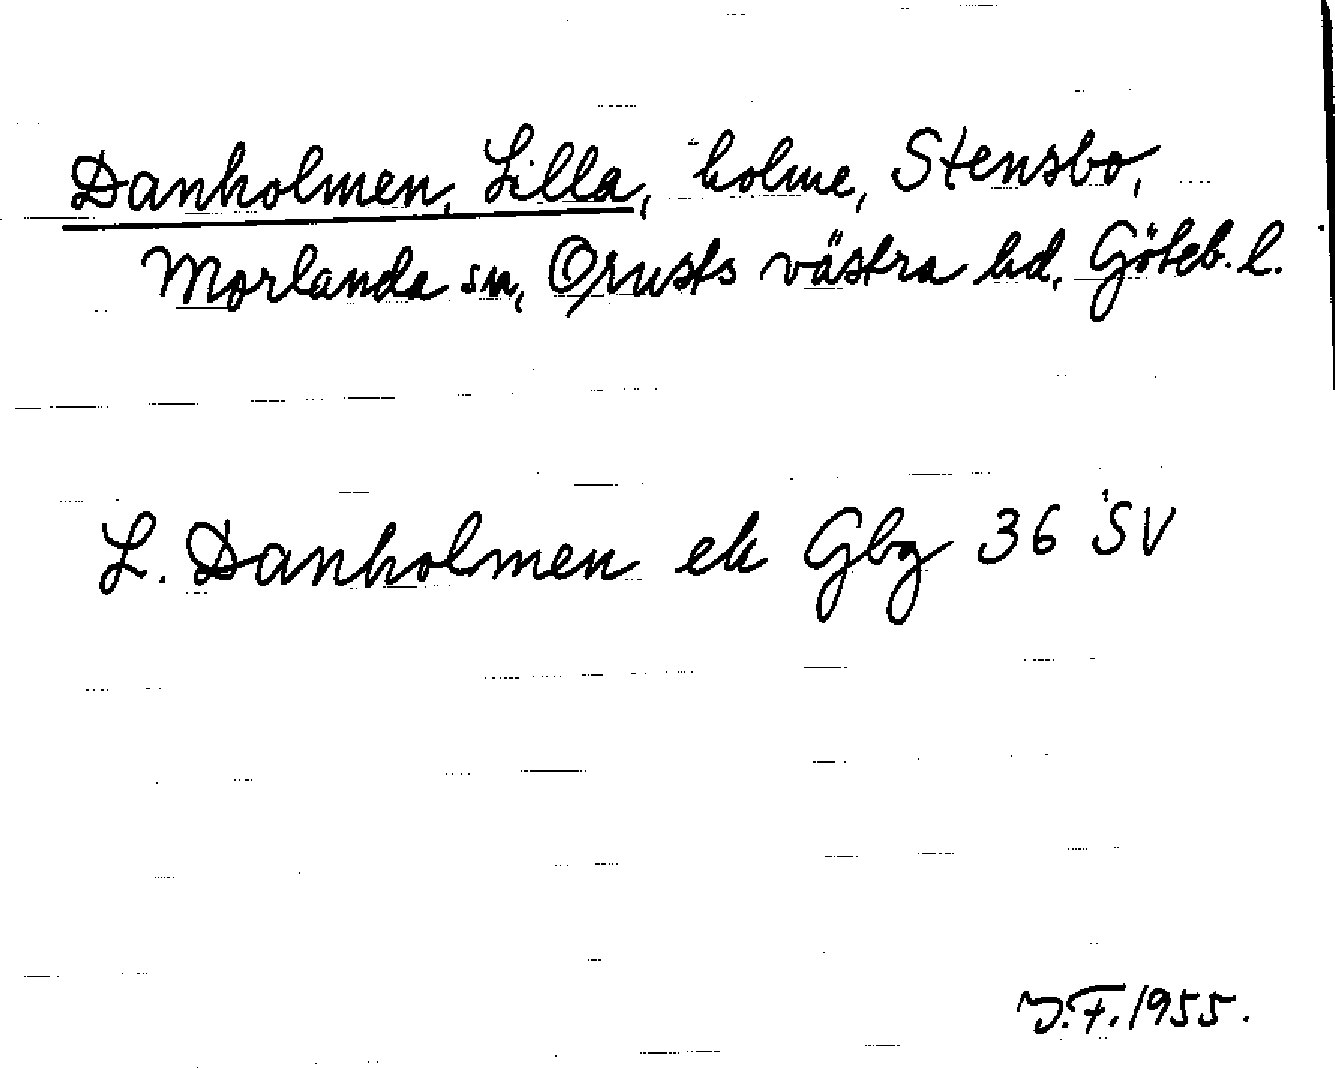 Danholmen, Lilla, holme, Stensbo,
Morlanda sn, Orusts västra hd. Göteb. l.
L. Danholmen ek Gbg 36 SV
J.F. 1955.